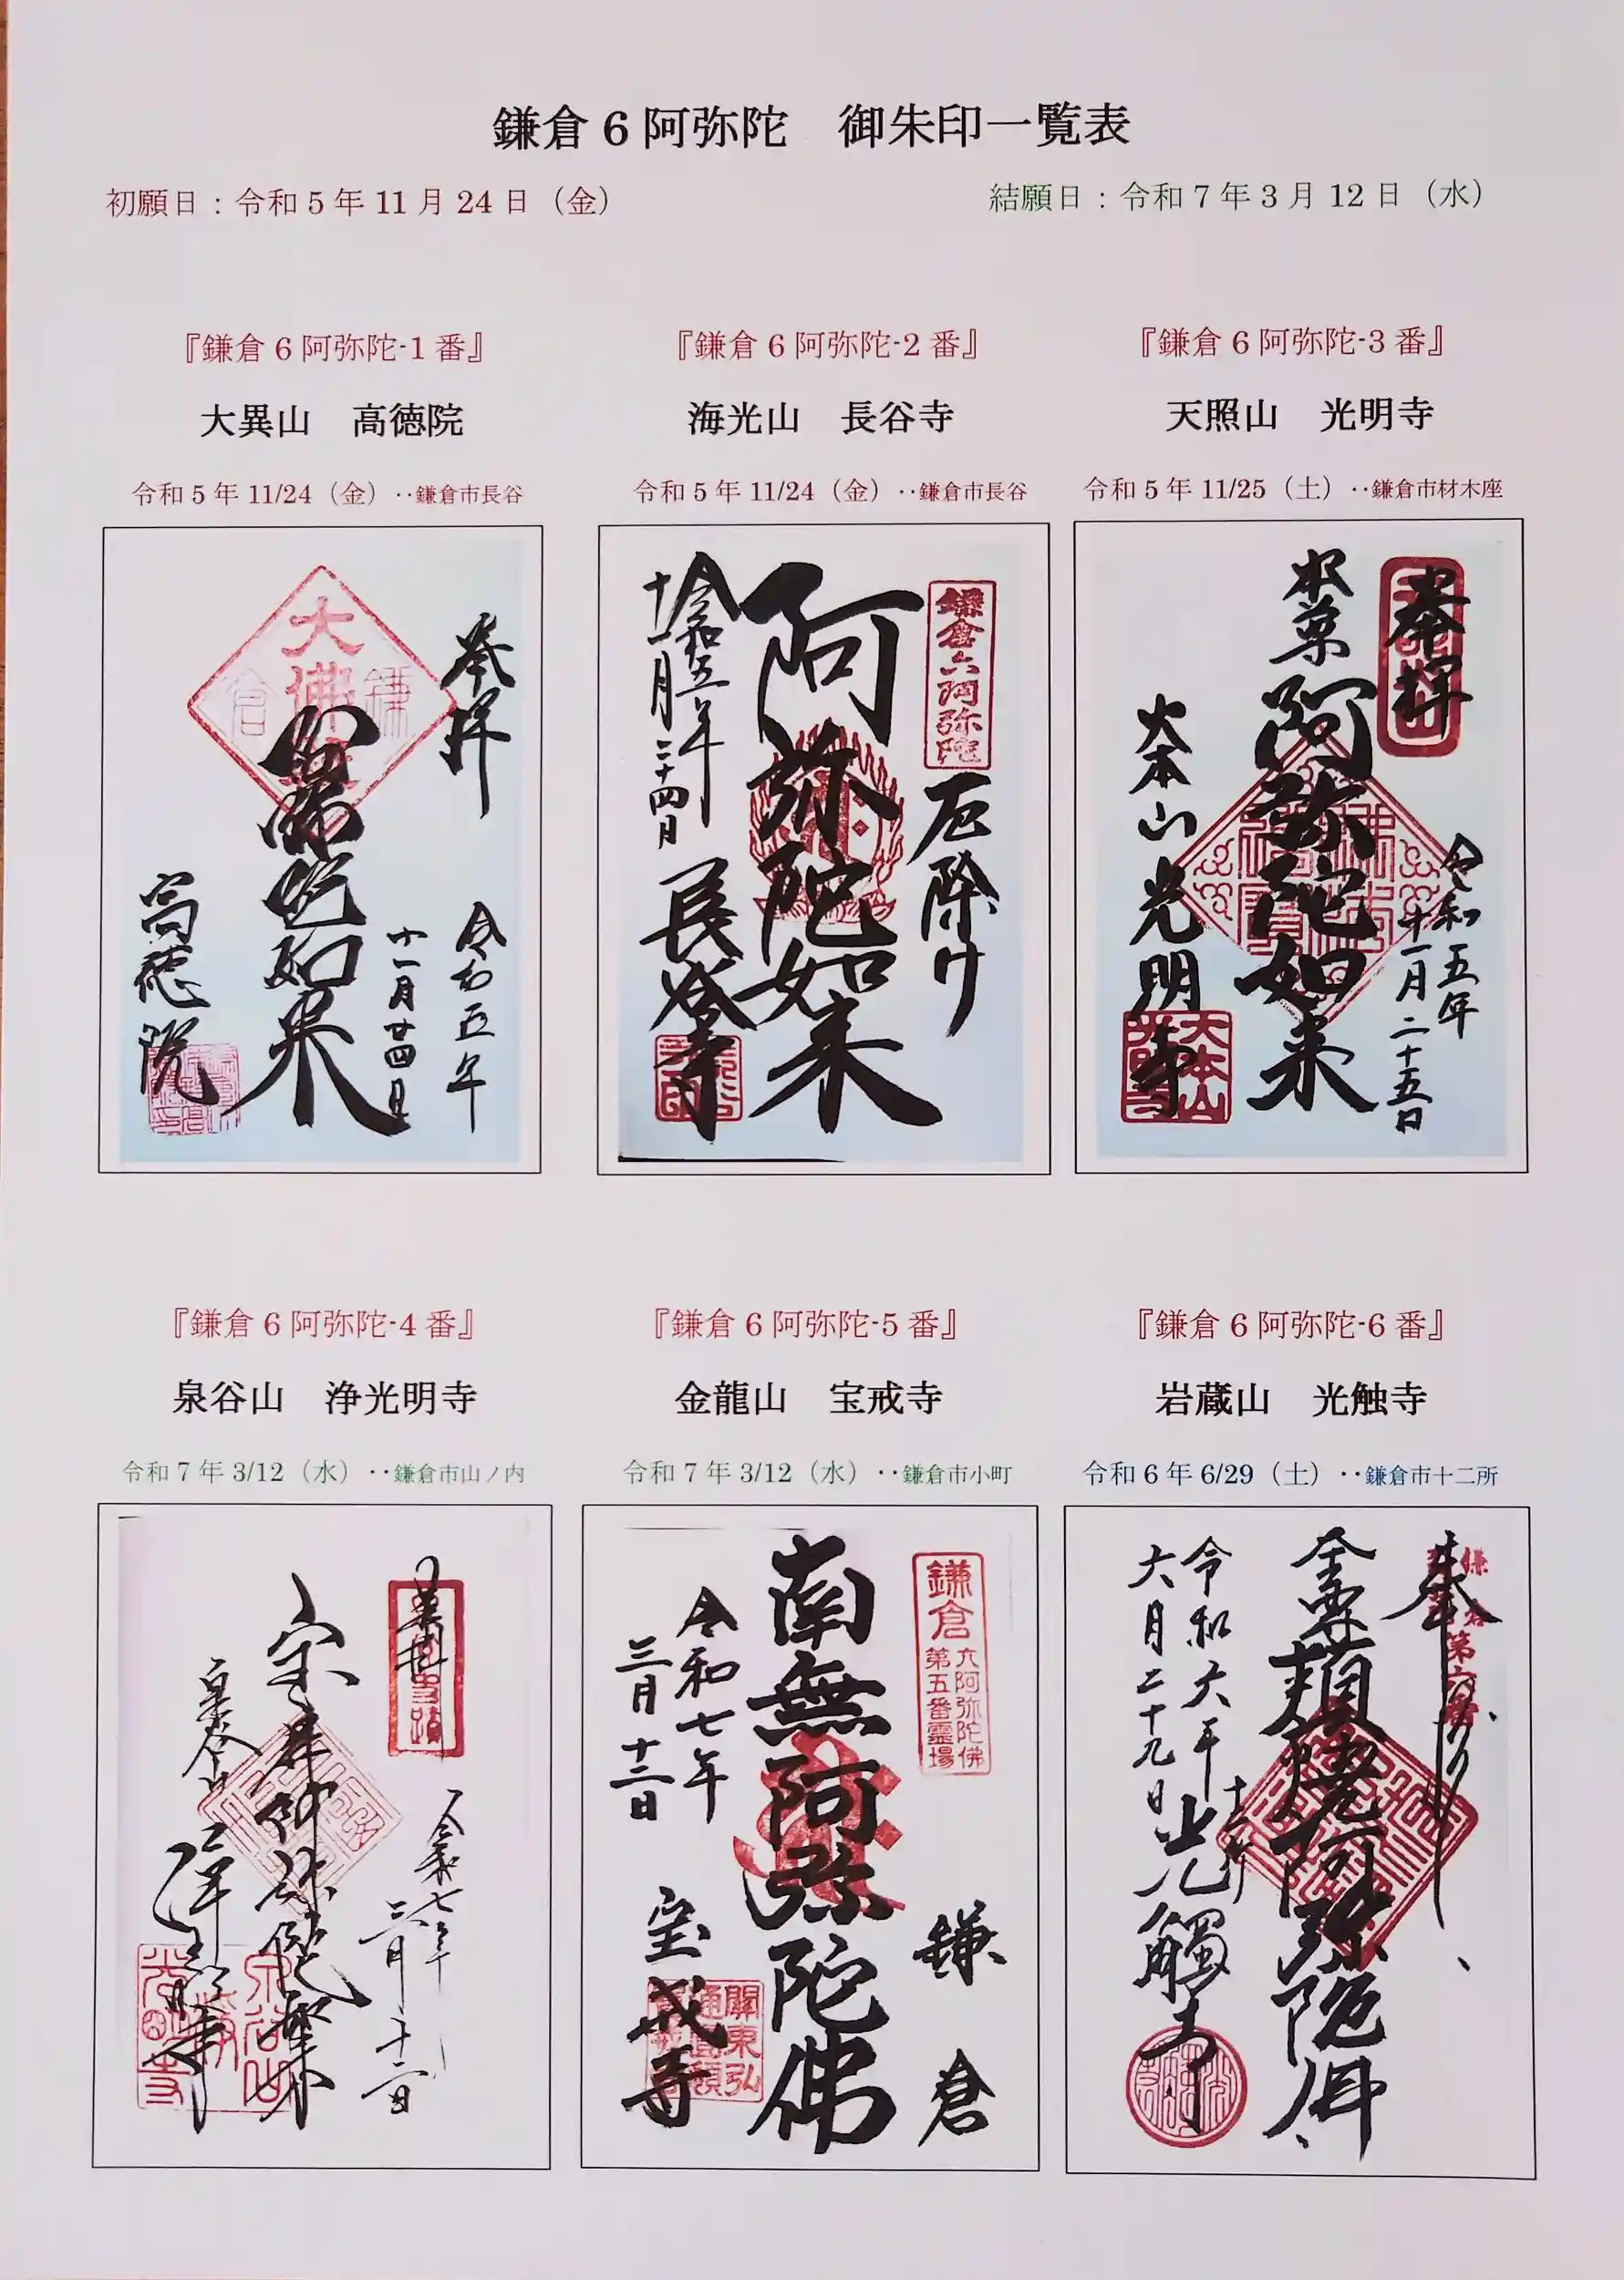 鎌倉6阿弥陀　御朱印一覧表
初願日：令和5年11月24日（金）
結願日：令和7年3月12日（水）
『鎌倉6阿弥陀-1番』
大異山　高徳院
令和5年11/24（金）‥鎌倉市長谷
奉拝
令和五年
十一月廿四日
阿弥陀如来
高徳院
大佛
鎌倉
『鎌倉6阿弥陀-2番』
海光山　長谷寺
令和5年11/24（金）‥鎌倉市長谷
鎌倉六阿弥陀
厄除け
阿弥陀如来
令和五年
十一月二十四日
長谷寺
『鎌倉6阿弥陀-3番』
天照山　光明寺
令和5年11/25（土）‥鎌倉市材木座
奉拝
令和五年
十一月二十五日
阿弥陀如来
大本山光明寺
大本山
『鎌倉6阿弥陀-4番』
泉谷山　浄光明寺
令和7年3/12（水）‥鎌倉市山ノ内
令和七年
三月十二日
泉谷山
光明寺
『鎌倉6阿弥陀-5番』
金龍山　宝戒寺
令和7年3/12（水）‥鎌倉市小町
鎌倉
六阿弥陀佛
第五番霊場
鎌倉
南無阿弥陀佛
令和七年
三月十二日
宝戒寺
『鎌倉6阿弥陀-6番』
岩蔵山　光触寺
令和6年6/29（土）‥鎌倉市十二所
奉
頬焼阿弥陀
令和六年
六月二十九日
十二所
光觸寺